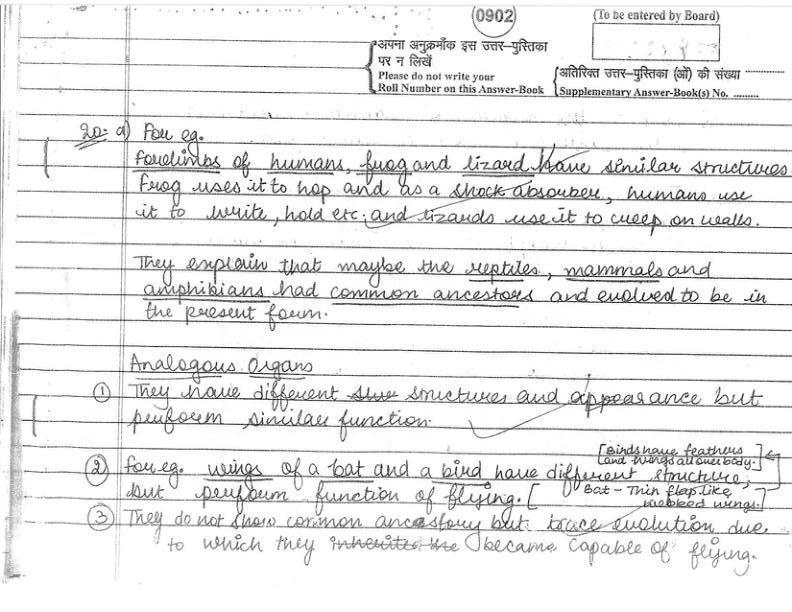 (0902)
(To be entered by Board)
अपना अनुक्रमाँक इस उत्तर–पुस्तिका
पर न लिखें
Please do not write your
Roll Number on this Answer-Book
अतिरिक्त उत्तर–पुस्तिका (ओं) की संख्या ............
Supplementary Answer-Book(s) No. .........
20. a) For eg.
forelimbs of humans, frog and lizard have similar structures.
Frog uses it to hop and as a shock absorber, humans use
it to write, hold etc. and lizards use it to creep on walls.
They explain that maybe the reptiles, mammals and
amphibians had common ancestors and evolved to be in
the present form.
Analogous Organs
① They have different structures and appearance but
perform similar function.
② For eg. wings of a bat and a bird have different structure,
but perform function of flying.
[Birds have feathers
and wings all over body.]
[Bat - Thin flap like
webbed wings.]
③ They do not show common ancestory but trace evolution due
to which they inherited the became capable of flying.